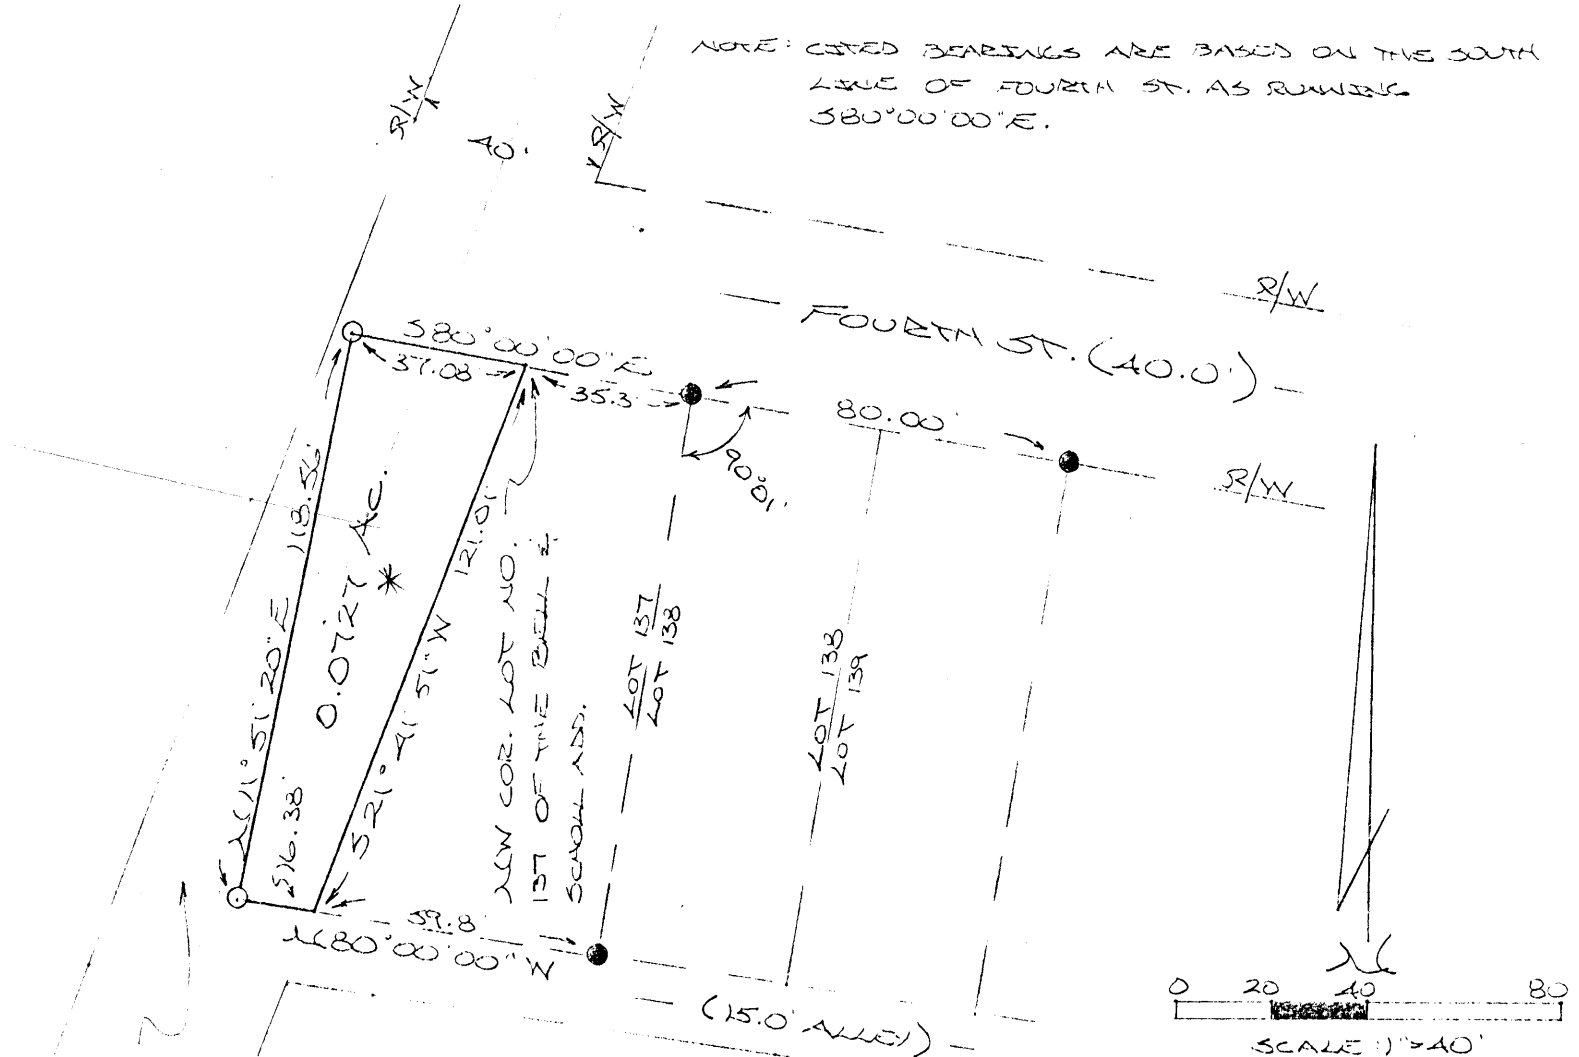 NOTE: CITED BEARINGS ARE BASED ON THE SOUTH
LINE OF FOURTH ST. AS RUNNING
S80°00'00"E.
R/W
40'
R/W
R/W
FOURTH ST. (40.0')
S80°00'00"E
37.08
35.3
80.00'
90°01'
R/W
N11°51'20"E 118.56'
0.0727 AC.
*
S21°41'51"W 121.01'
NW COR. LOT NO.
137 OF THE BELL &
SCHOLL ADD.
LOT 137
LOT 138
LOT 138
LOT 139
16.38'
59.8'
N80°00'00"W
(15.0' ALLEY)
N
0 20 40 80
SCALE: 1"=40'